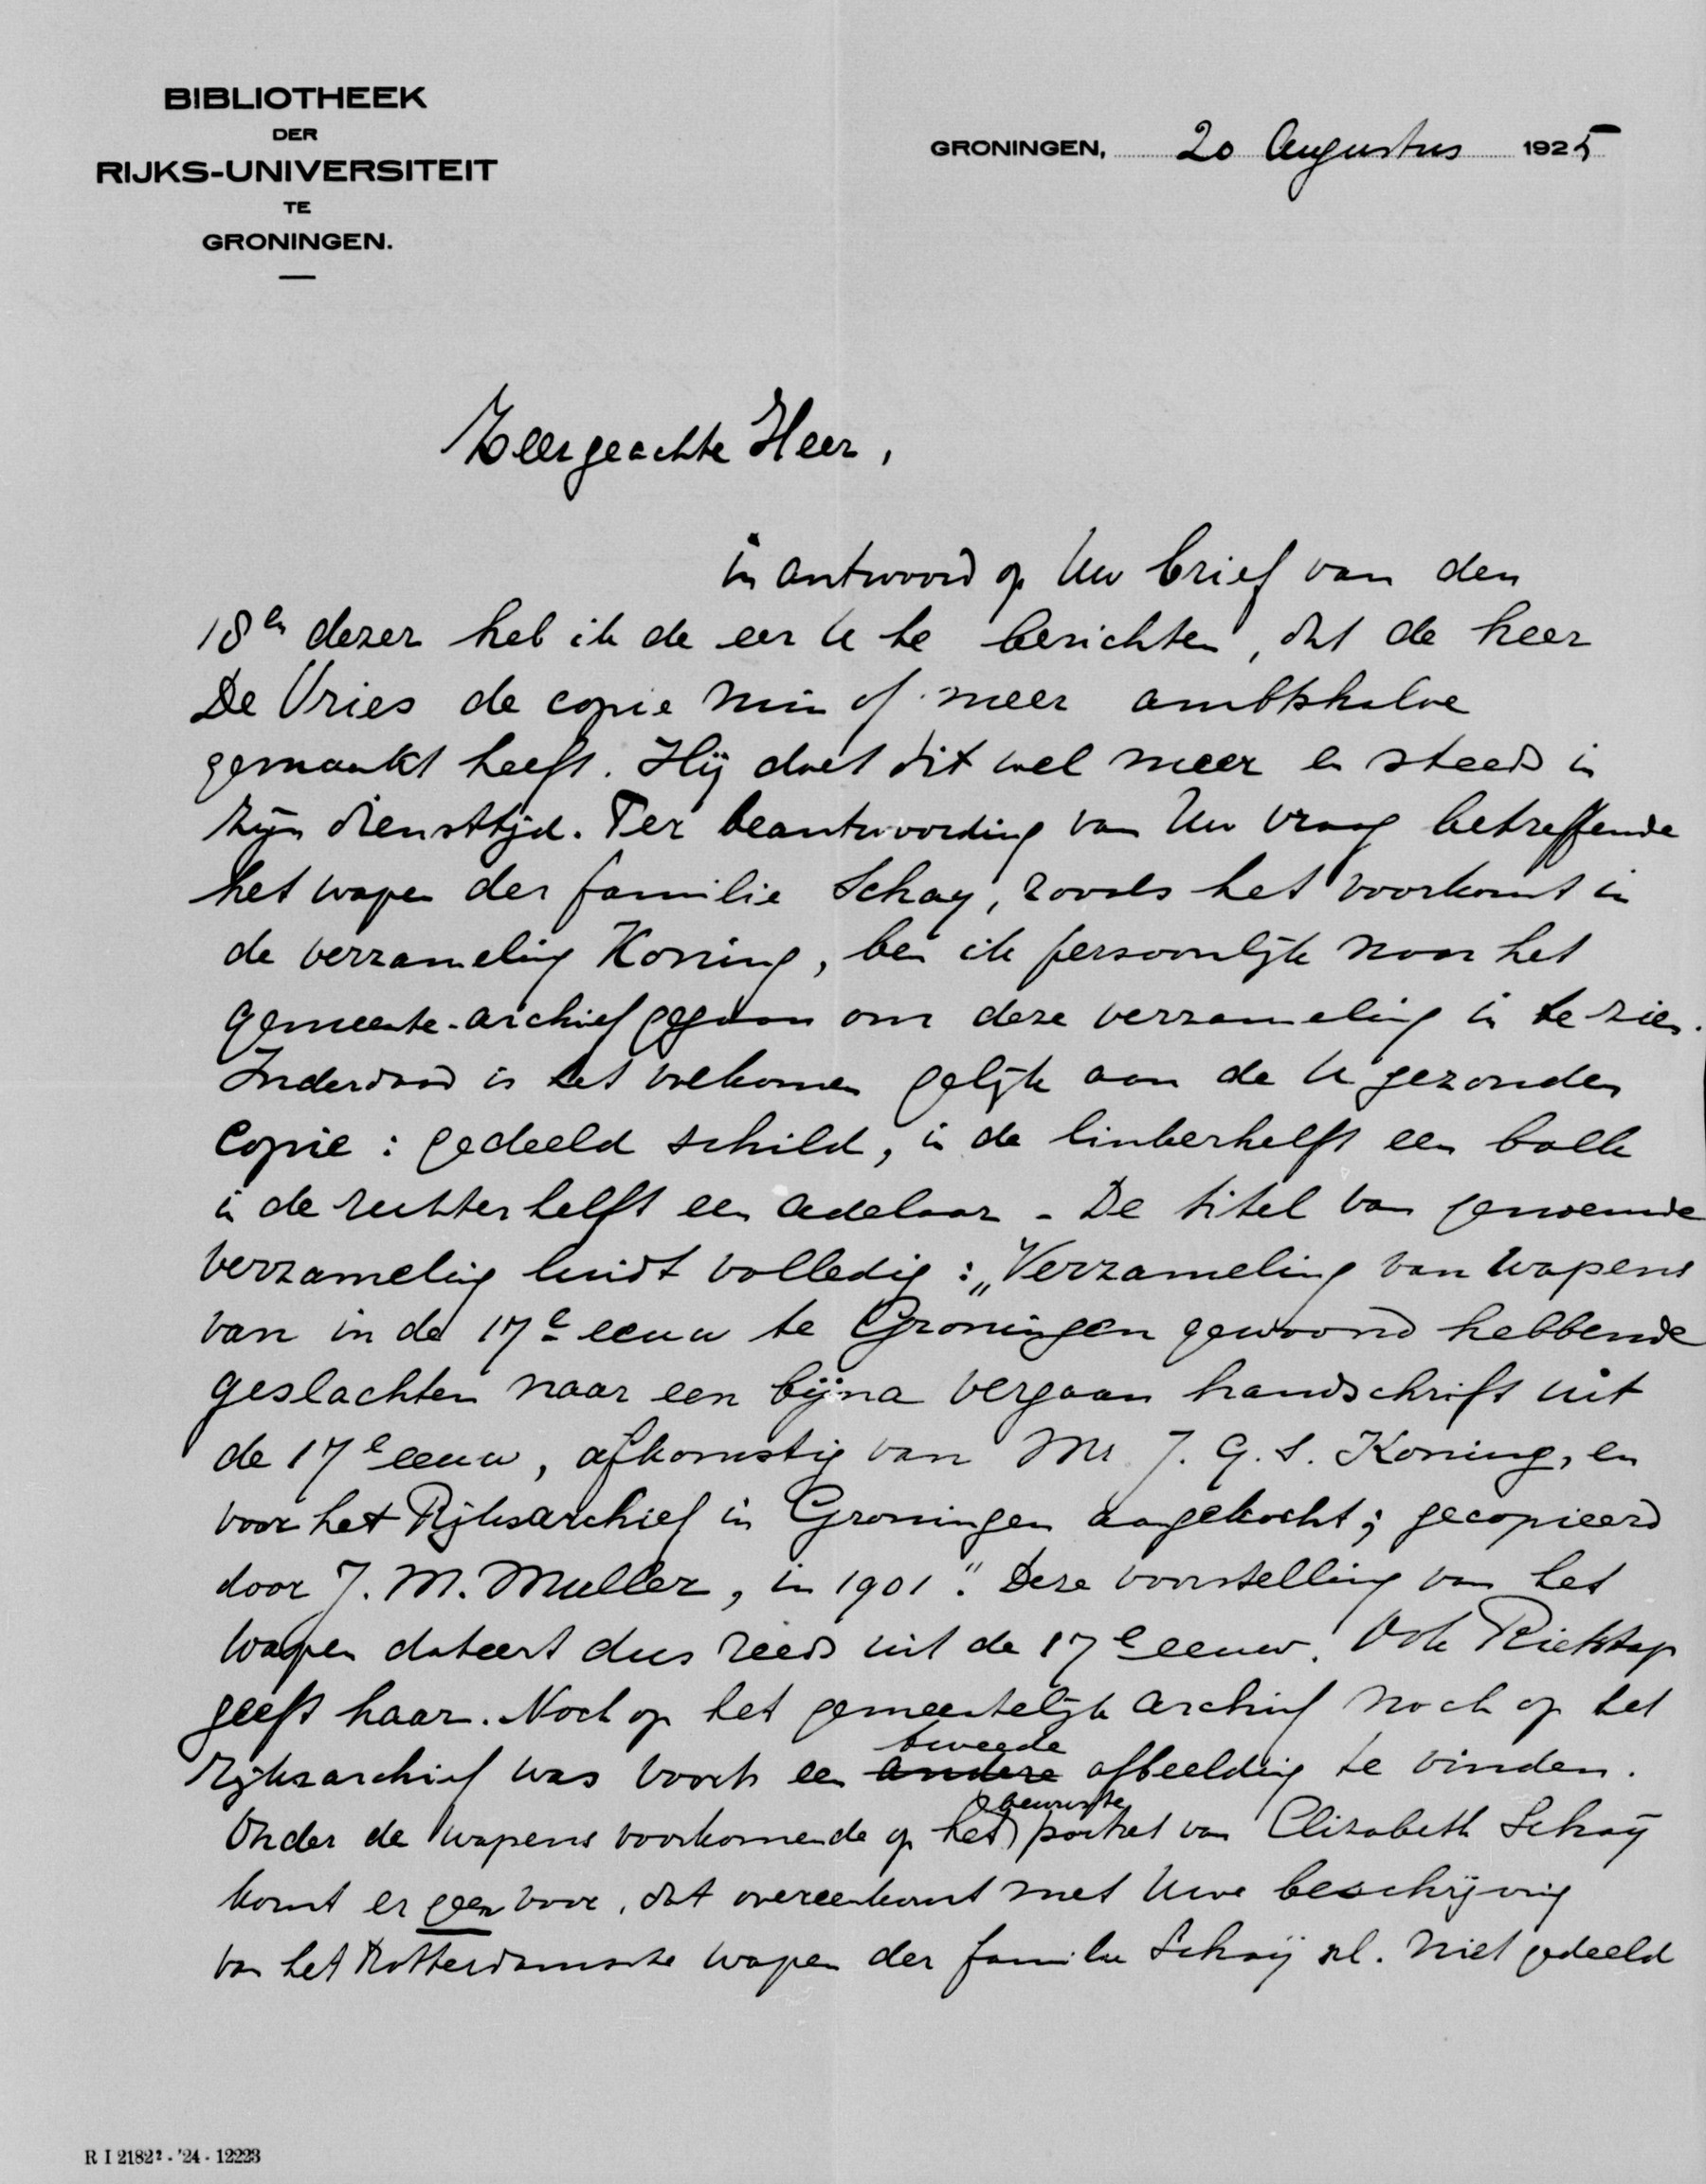 BIBLIOTHEEK
DER
RIJKS-UNIVERSITEIT
TE
GRONINGEN.
GRONINGEN, 20 Augustus 1925
Zeergeachte Heer,
in antwoord op Uw brief van den
18en dezer heb ik de eer U te berichten, dat de heer
De Vries de copie min of meer ambtshalve
gemaakt heeft. Hij doet dit wel meer en steeds in
zijn diensttijd. Ter beantwoording van Uw vraag betreffende
het wapen der familie Schay, zooals het voorkomt in
de verzameling Koning, ben ik persoonlijk naar het
gemeente-archief gegaan om deze verzameling in te zien.
Inderdaad is het volkomen gelijk aan de U gezonden
copie: gedeeld schild, in de linkerhelft een balk
in de rechterhelft een adelaar - De titel van genoemde
verzameling luidt volledig: „Verzameling van wapens
van in de 17e eeuw te Groningen gewoond hebbende
geslachten naar een bijna vergaan handschrift uit
de 17e eeuw, afkomstig van Mr. J. G. S. Koning, en
voor het Rijksarchief in Groningen aangekocht; gecopieerd
door J. M. Muller, in 1901." Deze voorstelling van het
wapen dateert dus reeds uit de 17e eeuw. Ook Rietstap
geeft haar. Noch op het gemeentelijk archief noch op het
tweede
Rijksarchief was voorts een andere afbeelding te vinden.
bewuste
Onder de wapens voorkomende op het portret van Elizabeth Schaÿ
komt er geen voor, dat overeenkomt met Uwe beschrijving
van het Rotterdamsche wapen der familie Schaÿ nl. niet gedeeld
R I 2182² - '24 - 12223